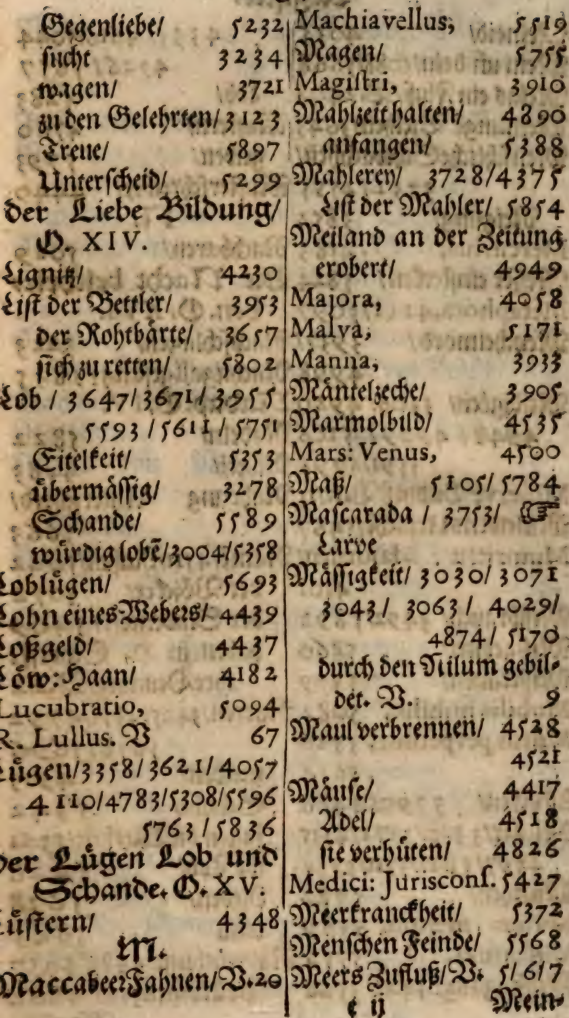 Gegenliebe/ 5232
sucht 3234
wagen/ 3721
zu den Gelehrten/ 3123
Treue/ 5897
Unterscheid/ 5299
der Liebe Bildung/
O. XIV.
Lignitz/ 4230
List der Bettler/ 3953
der Rohtbärte/ 3657
sich zu retten/ 5802
Lob / 3647/ 3671/ 3955
5593 / 5611 / 5751
Eitelkeit/ 5353
übermässig/ 3278
Schande/ 5589
würdig lobē/ 3004/ 5358
Loblügen/ 5693
Lohn eines Webers/ 4439
Loßgeld/ 4437
Löw: Haan/ 4182
Lucubratio, 5094
R. Lullus. V 67
Lügen/ 3358/ 3621/ 4057
4110/ 4783/ 5308/ 5596
5763 / 5836
der Lügen Lob und
Schande. O. XV.
Lüstern/ 4348
M.
Maccabeer Fahnen/ V. 20
Machiavellus, 5519
Magen/ 5755
Magistri, 3910
Mahlzeit halten/ 4890
anfangen/ 5388
Mahlerey/ 3728/ 4375
List der Mahler/ 5854
Meiland an der Zeitung
erobert/ 4949
Majora, 4058
Malva, 5171
Manna, 3933
Mäntelzeche/ 3905
Marmolbild/ 4535
Mars: Venus, 4500
Maß/ 5105/ 5784
Mascarada / 3753/ ☞
Larve
Mässigkeit/ 3030/ 3071
3043/ 3063/ 4029/
4874/ 5170
durch den Stilum gebil-
det. V. 9
Maul verbrennen/ 4528
4521
Mäuse/ 4417
Adel/ 4518
sie verhüten/ 4826
Medici: Juriscons. 5427
Meerkranckheit/ 5372
Menschen Feinde/ 5568
Meers Zufluß/ V. 5/ 6/ 7
e ij Mein-